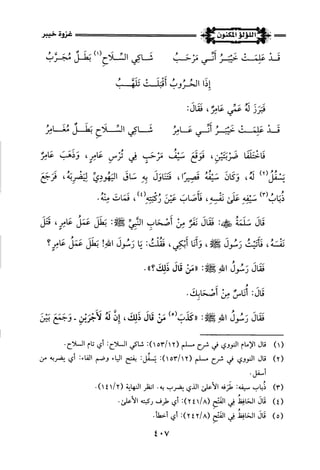 اللؤلؤ المكنون
غزوة خيبر
قَدْ عَلِمَتْ خَيْبَرُ أَنِّي مَرْحَبُ شَاكِي السِّلَاحِ(١) بَطَلٌ مُجَرَّبُ
إِذَا الْحُرُوبُ أَقْبَلَتْ تَلَهَّبُ
فَبَرَزَ لَهُ عَمِّي عَامِرٌ، فَقَالَ:
قَدْ عَلِمَتْ خَيْبَرُ أَنِّي عَامِرُ شَاكِي السِّلَاحِ بَطَلٌ مُغَامِرُ
فَاخْتَلَفَا ضَرْبَتَيْنِ، فَوَقَعَ سَيْفُ مَرْحَبٍ فِي تُرْسِ عَامِرٍ، وَذَهَبَ عَامِرٌ
يَسْفُلُ(٢) لَهُ، وَكَانَ سَيْفُهُ قَصِيرًا، فَتَنَاوَلَ بِهِ سَاقَ الْيَهُودِيِّ لِيَضْرِبَهُ، فَرَجَعَ
ذُبَابُ(٣) سَيْفِهِ عَلَى نَفْسِهِ، فَأَصَابَ عَيْنَ رُكْبَتِهِ(٤)، فَمَاتَ مِنْهُ.
قَالَ سَلَمَةُ ﷺ: فَقَالَ نَفَرٌ مِنْ أَصْحَابِ النَّبِيِّ ﷺ: بَطَلَ عَمَلُ عَامِرٍ، قَتَلَ
نَفْسَهُ، فَأَتَيْتُ رَسُولَ اللهِ ﷺ، وَأَنَا أَبْكِي، فَقُلْتُ: يَا رَسُولَ اللهِ! بَطَلَ عَمَلُ عَامِرٍ؟
فَقَالَ رَسُولُ اللهِ ﷺ: «مَنْ قَالَ ذَلِكَ؟».
قَالَ: أُنَاسٌ مِنْ أَصْحَابِكَ.
فَقَالَ رَسُولُ اللهِ ﷺ: «كَذَبَ(٥) مَنْ قَالَ ذَلِكَ، إِنَّ لَهُ لَأَجْرَيْنِ ـ وَجَمَعَ بَيْنَ
(١) قَالَ الإمام النووي في شرح مسلم (١٥٣/١٢): شاكي السلاح: أي تام السلاح.
(٢) قَالَ النووي في شرح مسلم (١٥٣/١٢): يَسْفُل: بفتح الياء وضم الفاء: أي يضربه من
أسفل.
(٣) ذُباب سيفه: طَرَفه الأعلى الذي يضرب به. انظر النهاية (١٤١/٢).
(٤) قَالَ الحَافِظُ فِي الفَتْحِ (٢٤١/٨): أي طرف ركبته الأعلى.
(٥) قَالَ الحَافِظُ فِي الفَتْحِ (٢٤٢/٨): أي أخطأ.
٤٠٧